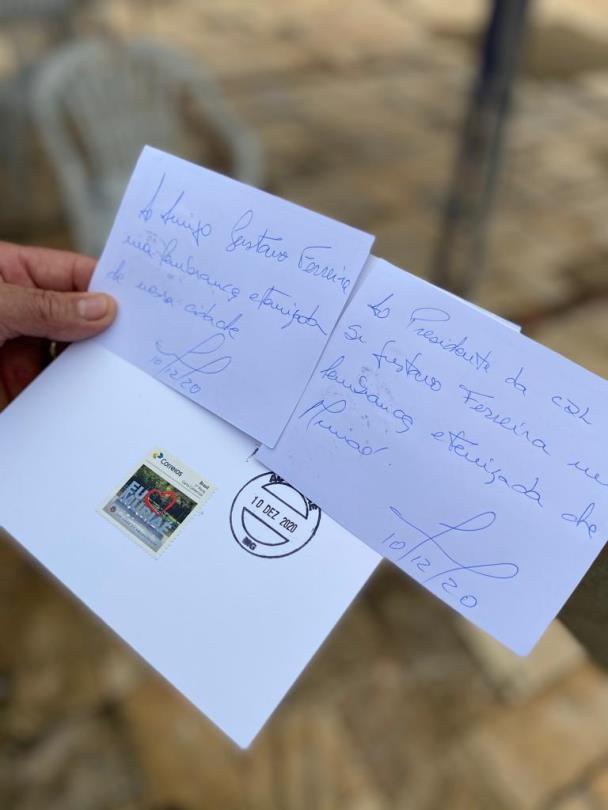 Ao Amigo Gustavo Ferreira
uma lembrança eternizada
de nossa cidade
10/12/20
Ao Presidente da CDL
Sr Gustavo Ferreira uma
lembrança eternizada de
Muriaé.
10/12/20
Correios
Brasil
EU
MURIAÉ
10 DEZ 2020
MG